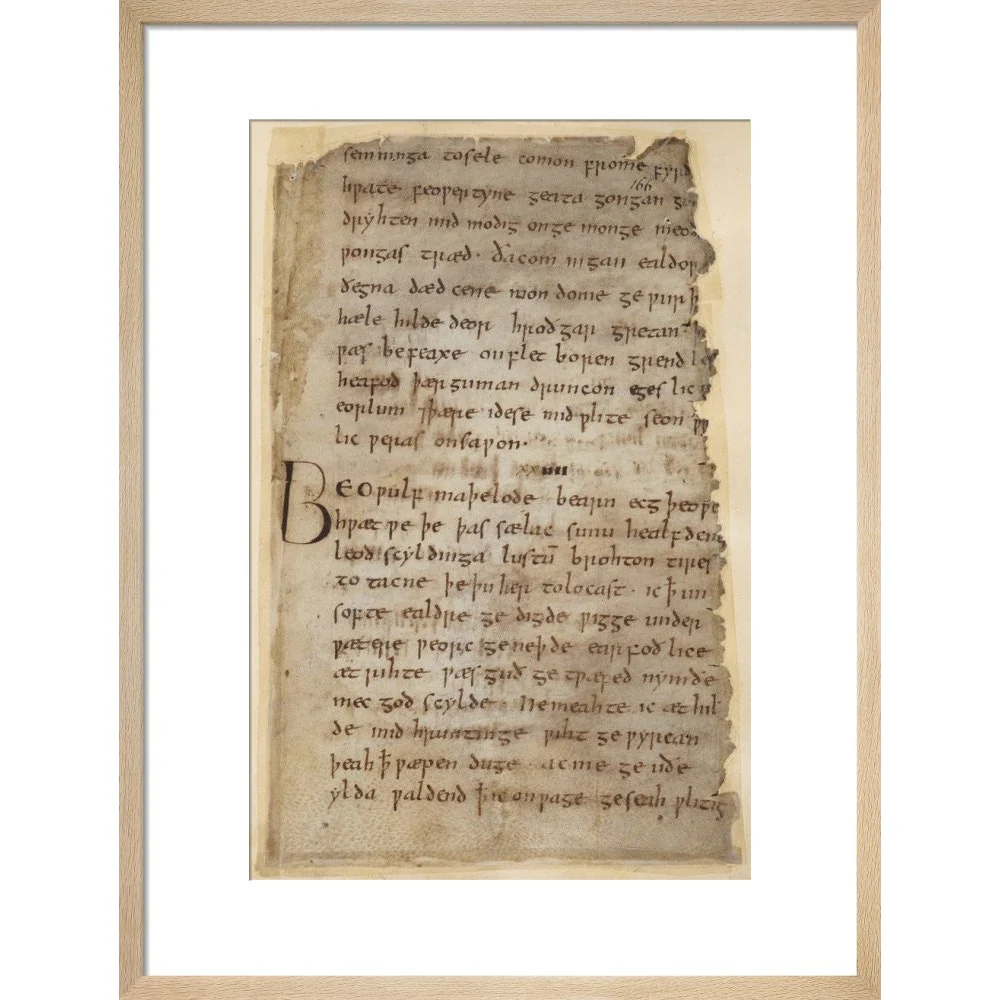 semninga to sele comon frome fyrd
hƿate feoƿertyne geata gongan gu
166
dryhten mid modig on ge monge meodo
ƿongas træd · ða com in gan ealdor
ðegna dæd cene mon dome ge ƿurþ
hæle hilde deor hroðgar gretan þa
ƿæs be feaxe on flet boren grendles
heafod þær guman druncon egeslic
eorlum ⁊ þære idese mid ƿlite seon
lic ƿeras on saƿon ·
xxiiii
BEOƿulf maþelode bearn ecg þeoƿes
hƿæt ƿe þe þas sælac sunu healfdenes
leod scyldinga lustū brohton tires
to tacne þe þu her to locast · ic ꝥ un
softe ealdre ge digde ƿigge under
ƿætere ƿeorc ge neþde earfoðlice
æt rihte ƿæs guð ge tƿæfed nymðe
mec god scylde · Ne meahte ic æt hil
de mid hruntinge ƿiht ge ƿyrcan
þeah ꝥ ƿæpen duge · ac me ge uðe
ylda ƿaldend ꝥ ic on ƿage geseah ƿlitig